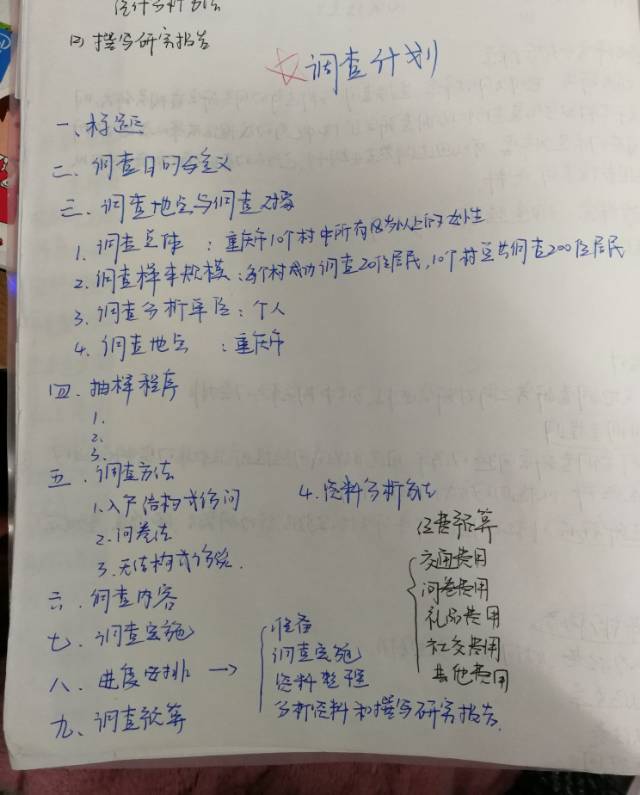 统计分析方法
(4) 撰写研究报告
☆调查计划
一、标题
二、调查目的与意义
三、调查地点与调查对象
1. 调查总体：重庆市10个村中所有18岁以上的女性
2. 调查样本规模：每个村成功调查20位居民，10个村总共调查200位居民
3. 调查分析单位：个人
4. 调查地点：重庆市
四、抽样程序
1.
2.
3.
五、调查方法
1. 入户结构式访问 4. 资料分析方法
2. 问卷法
3. 无结构式访谈.
六、调查内容
七、调查实施
八、进度安排 →
准备
调查实施
资料整理
分析资料和撰写研究报告.
九、调查预算
经费预算
交通费用
问卷费用
礼品费用
社交费用
其他费用